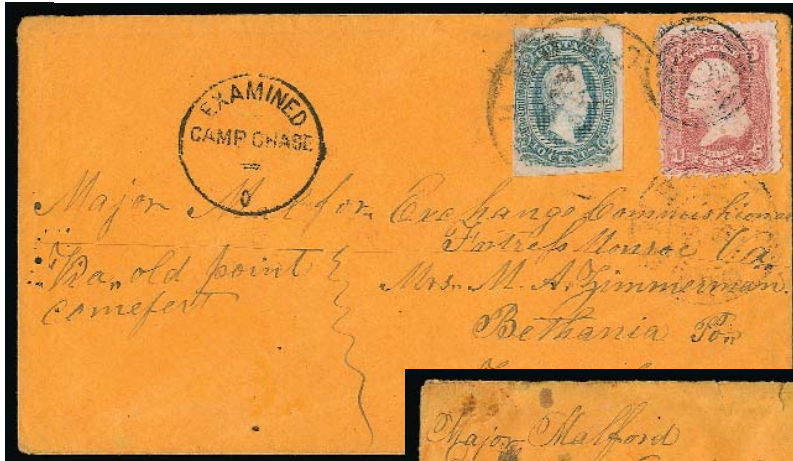 EXAMINED
CAMP CHASE
O
Major Mulford Exchange Commishioner
Fortress Monroe Va.
Via old point
comefert
Mrs. M. A. Zimmerman
Bethania Po
CENTS
Major Malford